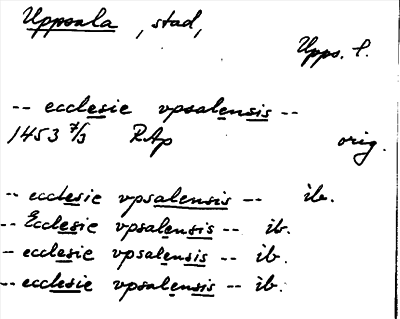 Uppsala, stad,
Upps. l.
-- ecclesie vpsalensis --
1453 7/3 RAp orig.
-- ecclesie vpsalensis -- ib.
-- Ecclesie vpsalensis -- ib.
- ecclesie vpsalensis -- ib.
-- ecclesie vpsalensis -- ib.